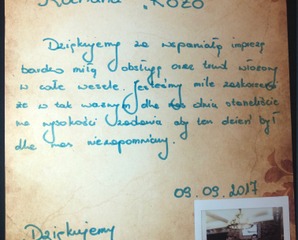 Kochana "KOZO
Dziękujemy za wspaniałą imprezę
bardzo miłą obsługę oraz trud włożony
w całe wesele. Jesteśmy mile zaskoczeni
że w tak ważnym dla nas dniu stanęliście
na wysokości zadania aby ten dzień był
dla nas niezapomniany.
09.09.2017
Dziękujemy